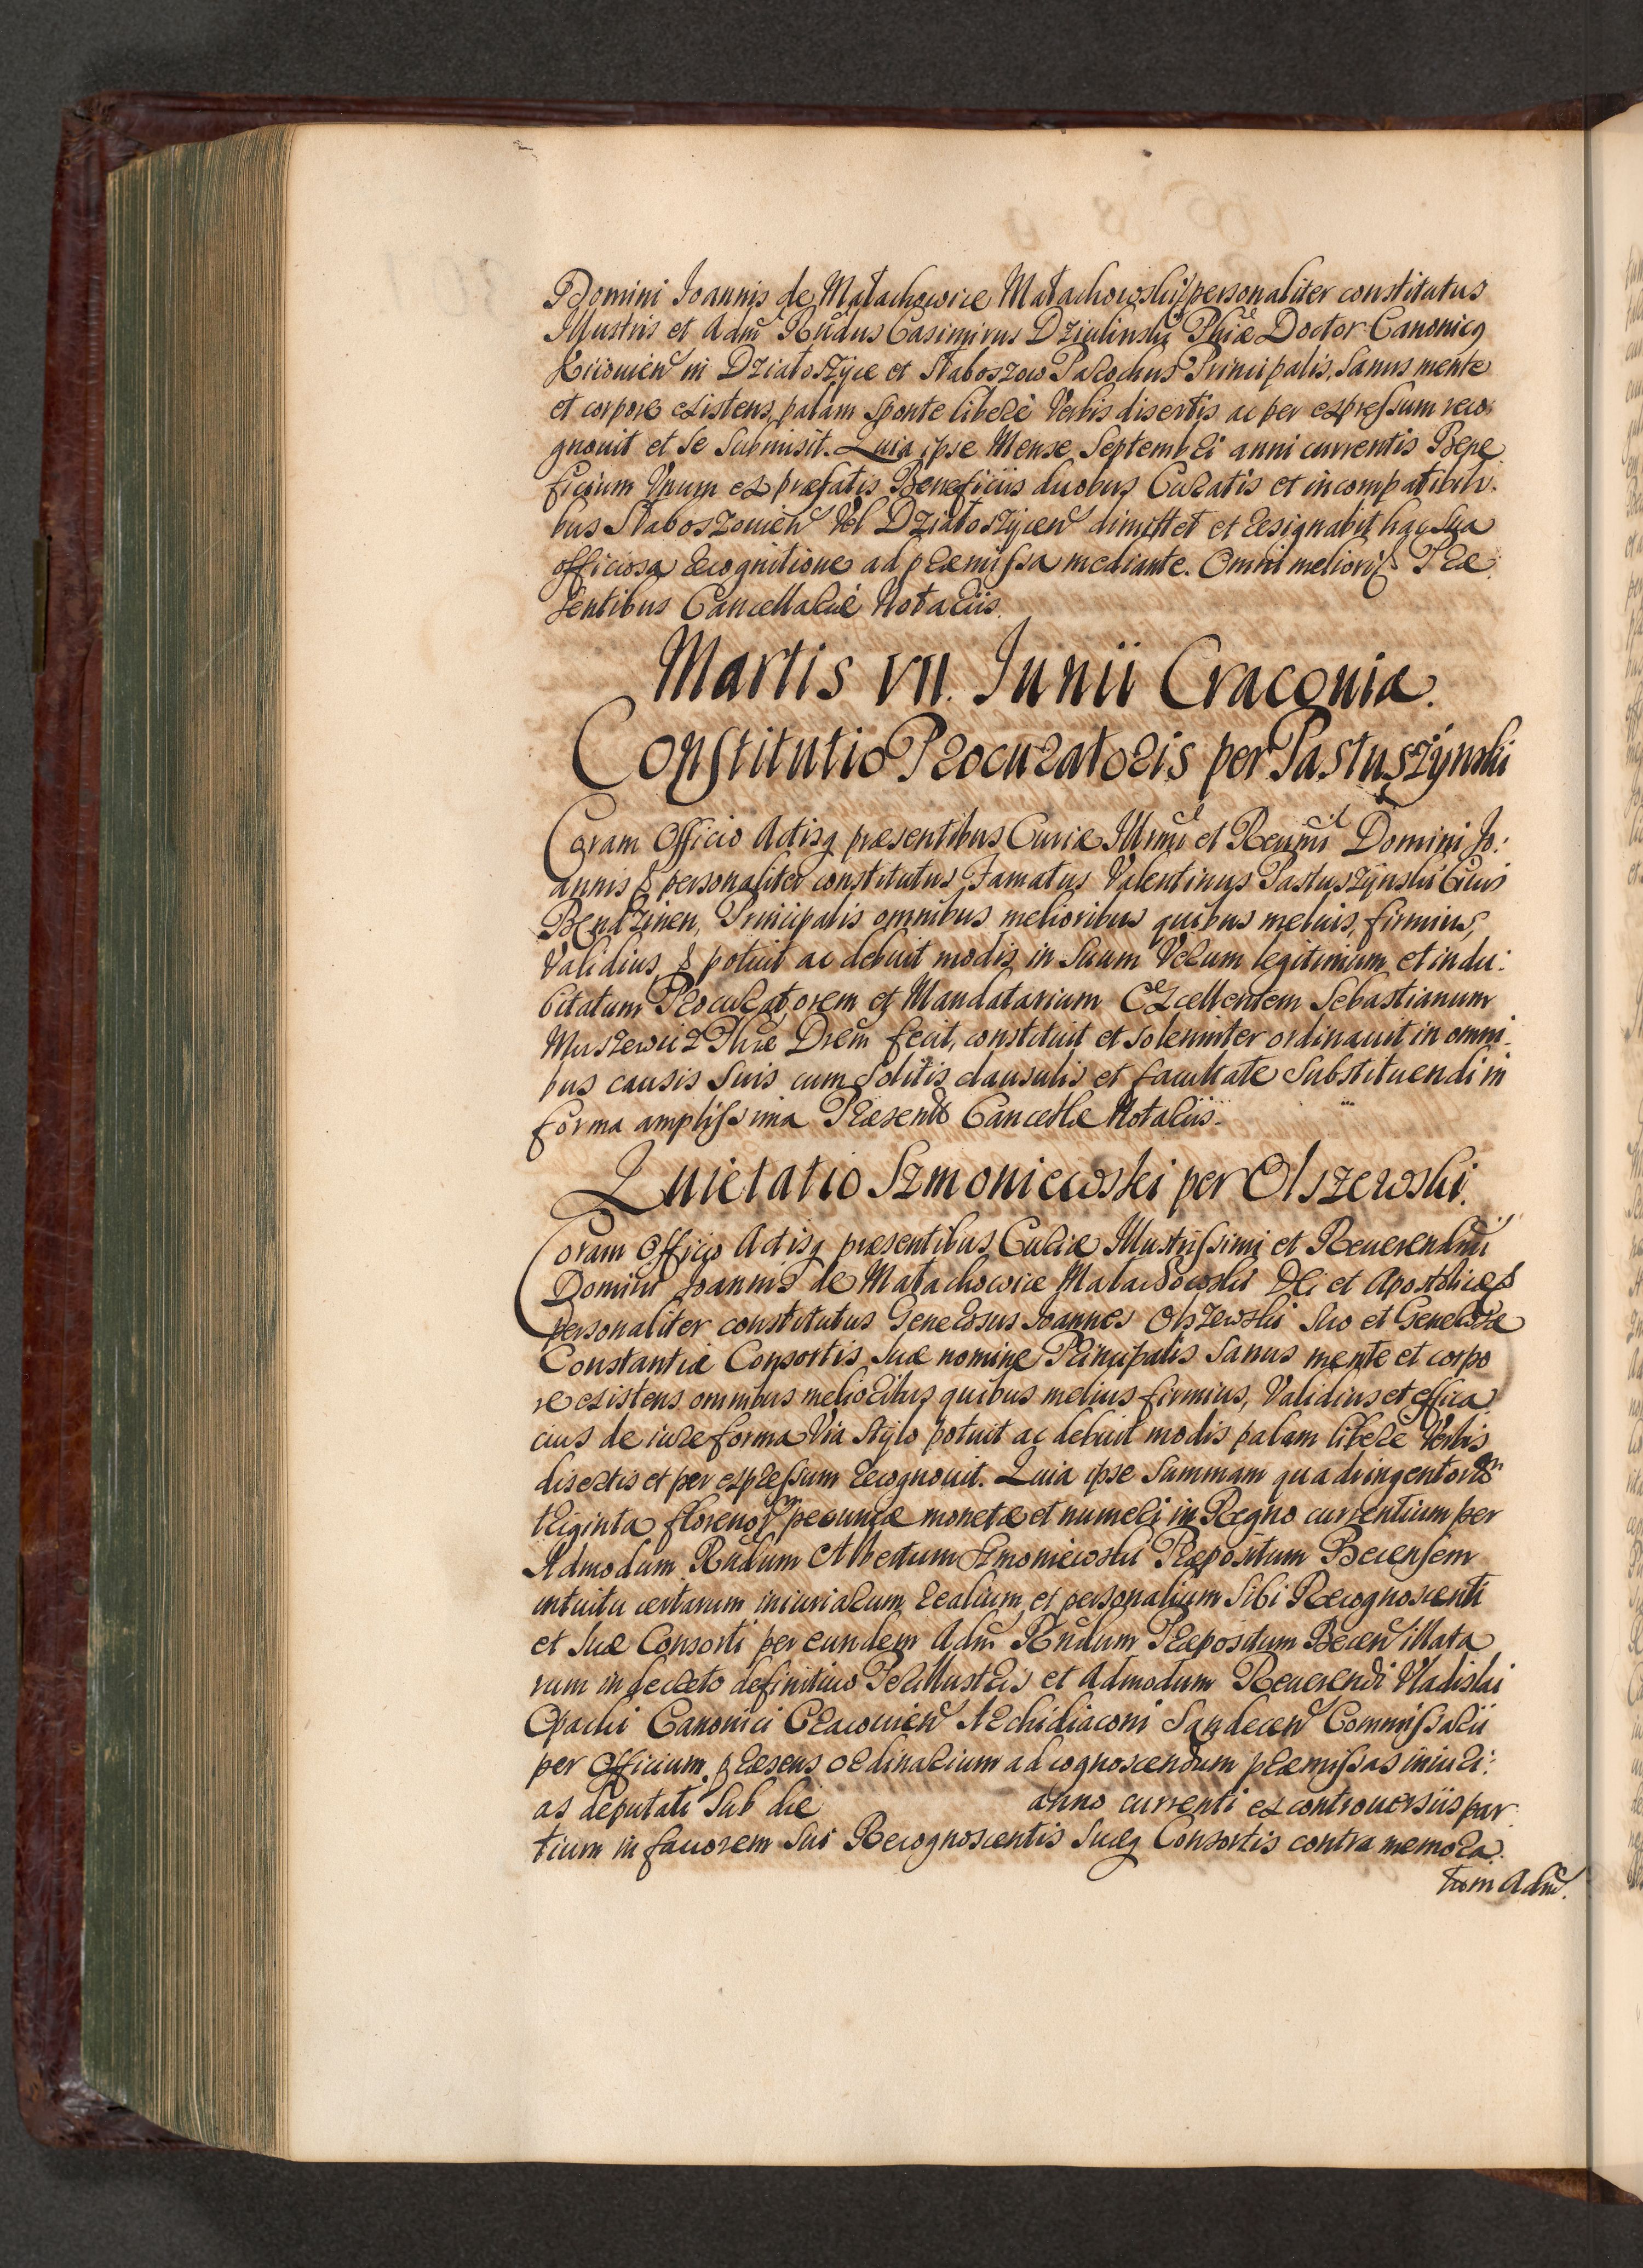 Domini Joannis de Małachowice Małachowski personaliter constitutus
Illustris et Adm Rndus Casimirus Dziulinski Phiæ Doctor Canonicq
Kiiouien in Działoszyce et Słaboszow Parochus Principalis, Sanus mente
et corpore existens, palam sponte liberè Verbis disertis ac per expressum reco:
gnouit et se submisit. Quia ipse Mense Septembri anni currentis Bene
ficium Vnum ex præfatis Beneficiis duobus Curatis et incompatibili:
bus Słaboszouien Vel Działoszycen dimittet et resignabit hac sua
officiosa recognitione ad præmissa mediante. Omni meliori & Præ
sentibus Cancellariæ Notariis.
Martis VII. Junii Cracouiæ.
Constitutio Procuratoris per Pastuszynski
Coram Officio Actisq præsentibus Curiæ Illmi et Reumi Domini Jo:
annis & personaliter constitutus Famatus Valentinus Pastuszynski Ciuis
Bendzinen, Principalis omnibus melioribus quibus melius, firmius,
Validius, & potuit ac debuit modis in suum Verum legitimum et indu:
bitatum Procuratorem et Mandatarium Excellentem Sebastianum
Muszewicz Phiæ Drem fecit, constituit et solemniter ordinauit in omni:
bus causis suis cum solitis clausulis et facultate substituendi in
forma amplissima Præsentib Cancellæ Notariis.
Quietatio Szmoniewski per Olszewski.
Coram Officio Actisq præsentibus Curiæ Illustrissimi et Reuerendmi
Domini Joannis de Małachowice Małachowski Dei et Apostolicæ &
personaliter constitutus Generosus Joannes Olszewski suo et Generosæ
Constantiæ Consortis suæ nomine Principalis Sanus mente et corpo
re existens omnibus melioribus quibus melius firmius, Validius et effica
cius de iure forma Via Stylo potuit ac debuit modis palam libere Verbis
disertis et per expressum recognouit. Quia ipse summam quadringentorum
triginta florenorum pecuniæ monetæ et numeri in Regno currentium per
Admodum Rndum Albertum Szmoniewski Præpositum Becensem
intuitu certarum iniuriarum realium et personalium sibi Recognoscenti
et suæ Consorti per eundem Adm Rndum Præpositum Becen illata
rum in decreto definitiuo Perillustris et Admodum Reuerendi Vladislai
Opacki Canonici Cracouien Archidiaconi Sandecen Commissarii
per Officium præsens ordinarium ad cognoscendum præmissas iniuri:
as deputati sub die anno currenti ex controuersiis par
tium in fauorem sui Recognoscentis suæq Consortis contra memora
tum Adm.